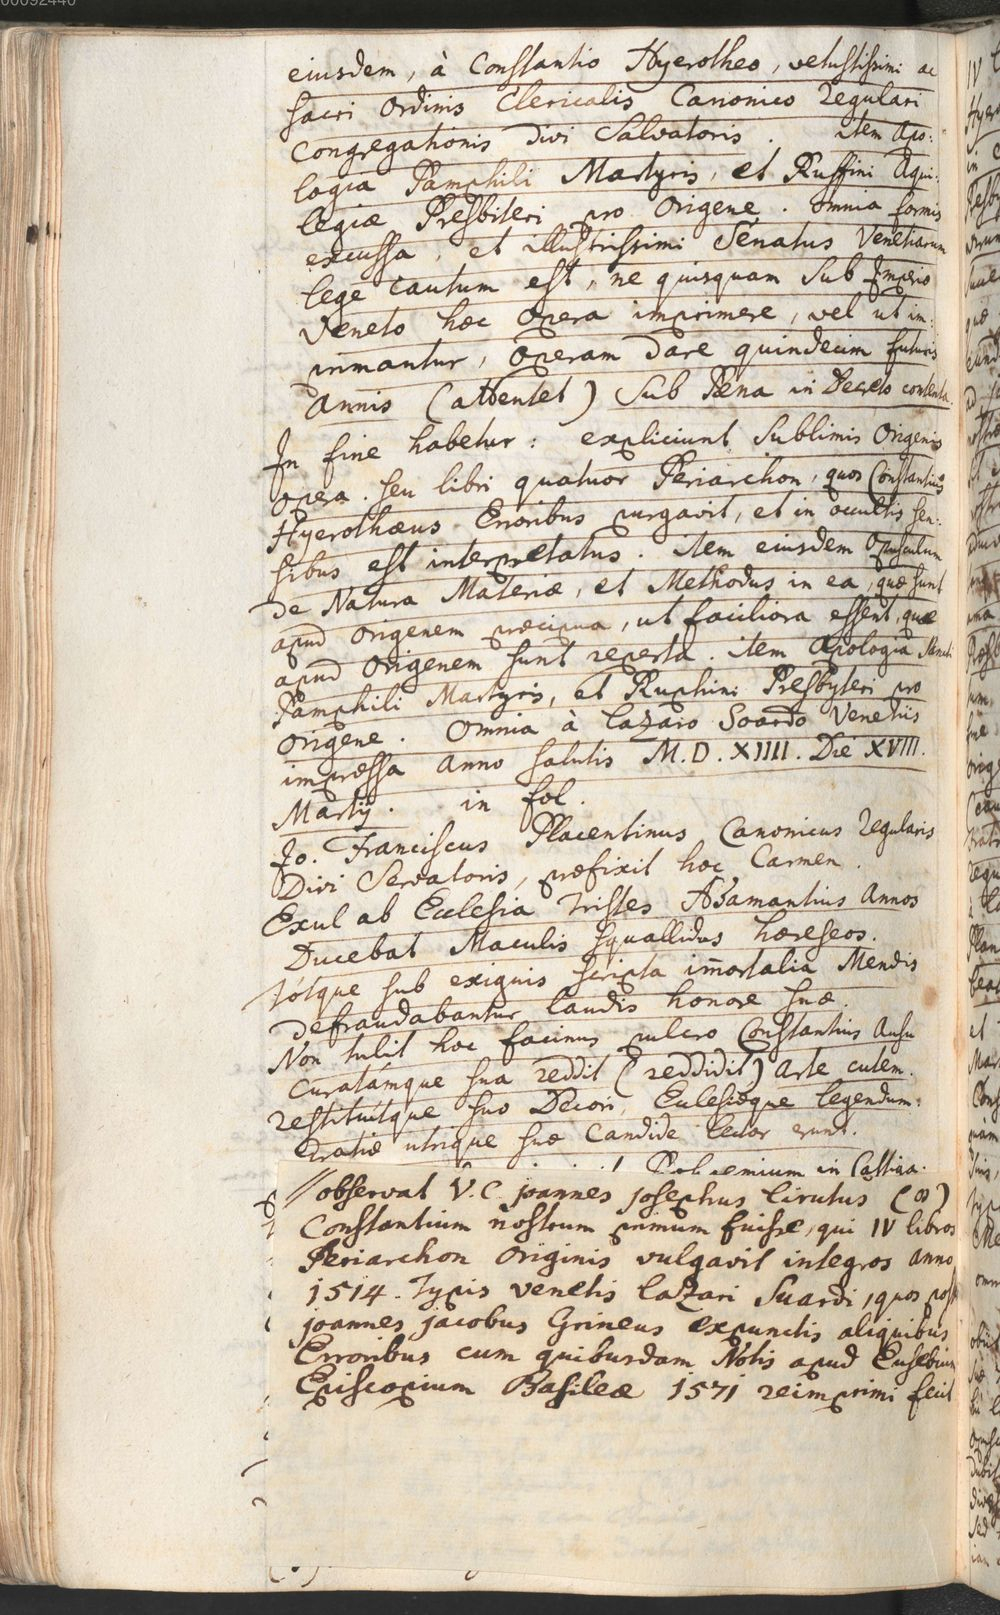 00092440
eiusdem, à Constantio Hyerotheo, vetustissimi ac
sacri Ordinis Clericalis Canonico Regulari
Congregationis Divi Salvatoris. item Apo:
logia Pamphili Martyris, et Ruffini Aqui:
legiæ Presbiteri pro Origene. omnia formis
excussa, et illustrissimi Senatus Venetiarum
lege cautum est, ne quisquam Sub Imperio
Veneto hæc Opera imprimere, vel ut im:
primantur, Operam dare quindecim futuris
Annis (attentet) Sub Pæna in Decreto contenta.
In fine habetur: expliciunt Sublimis Origenis
opera. seu libri quatuor Periarchon, quos Constantius
Hyerothæus Erroribus purgavit, et in occultis sen:
sibus est interpretatus. item eiusdem Opusculum
de Natura Materiæ, et Methodus in ea, quæ sunt
apud Origenem præcipua, ut faciliora essent, quæ
apud Origenem sunt reperta. item Apologia Sancti
Pamphili Martyris, et Ruphini Presbyteri pro
Origene. Omnia à Lazaro Soardo Venetiis
impressa anno salutis M.D.XIIII. Die XVIII.
Martij. in fol.
Jo. Franciscus Placentinus Canonicus Regularis
Divi Servatoris, præfixit hoc Carmen.
Exul ab Ecclesia tristes Adamantius Annos
Ducebat Maculis squallidus hæreseos.
Totque sub exiguis scripta im̄ortalia Mendis
defraudabantur laudis honore suæ.
Non tulit hoc facinus pulcro Constantius Ausu
Curatámque sua reddit (reddidit) Arte cutem.
restituitque suo Decori, Eclesiæque legendum:
Gratiæ utrique suæ Candide lector erunt.
in Castiga:
// observat V.C. Joannes Josephus Lirutus (∞)
Constantium nostrum primum fuisse, qui IV libros
Periarchon Originis vulgavit integros anno
1514. Typis venetis Lazari Suardi, quos post
Joannes Jacobus Grineus expunctis aliquibus
Erroribus cum quibusdam Notis apud Eusebium
Episcopium Basileæ 1571 reimprimi fecit